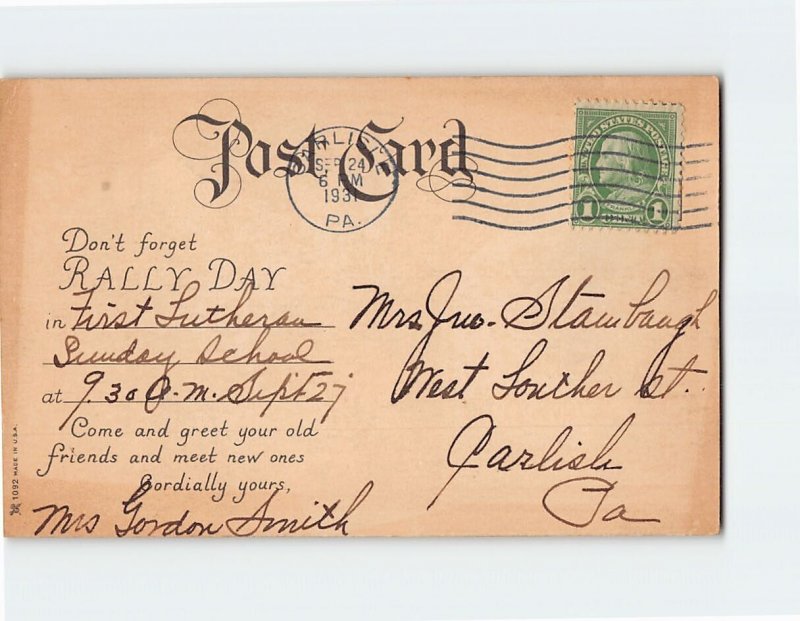 Post Card
CARLISLE
SEP 24
6 PM
1931
PA.
UNITED STATES POSTAGE
FRANKLIN
1 1
Don't forget
RALLY DAY
in First Lutheran
Sunday School
at 9.30 A.M. Sept 27
Come and greet your old
friends and meet new ones
Cordially yours,
Mrs Gordon Smith
Mrs Jno. Stambaugh
West Louther St.
Carlisle
Pa
1092 MADE IN U.S.A.